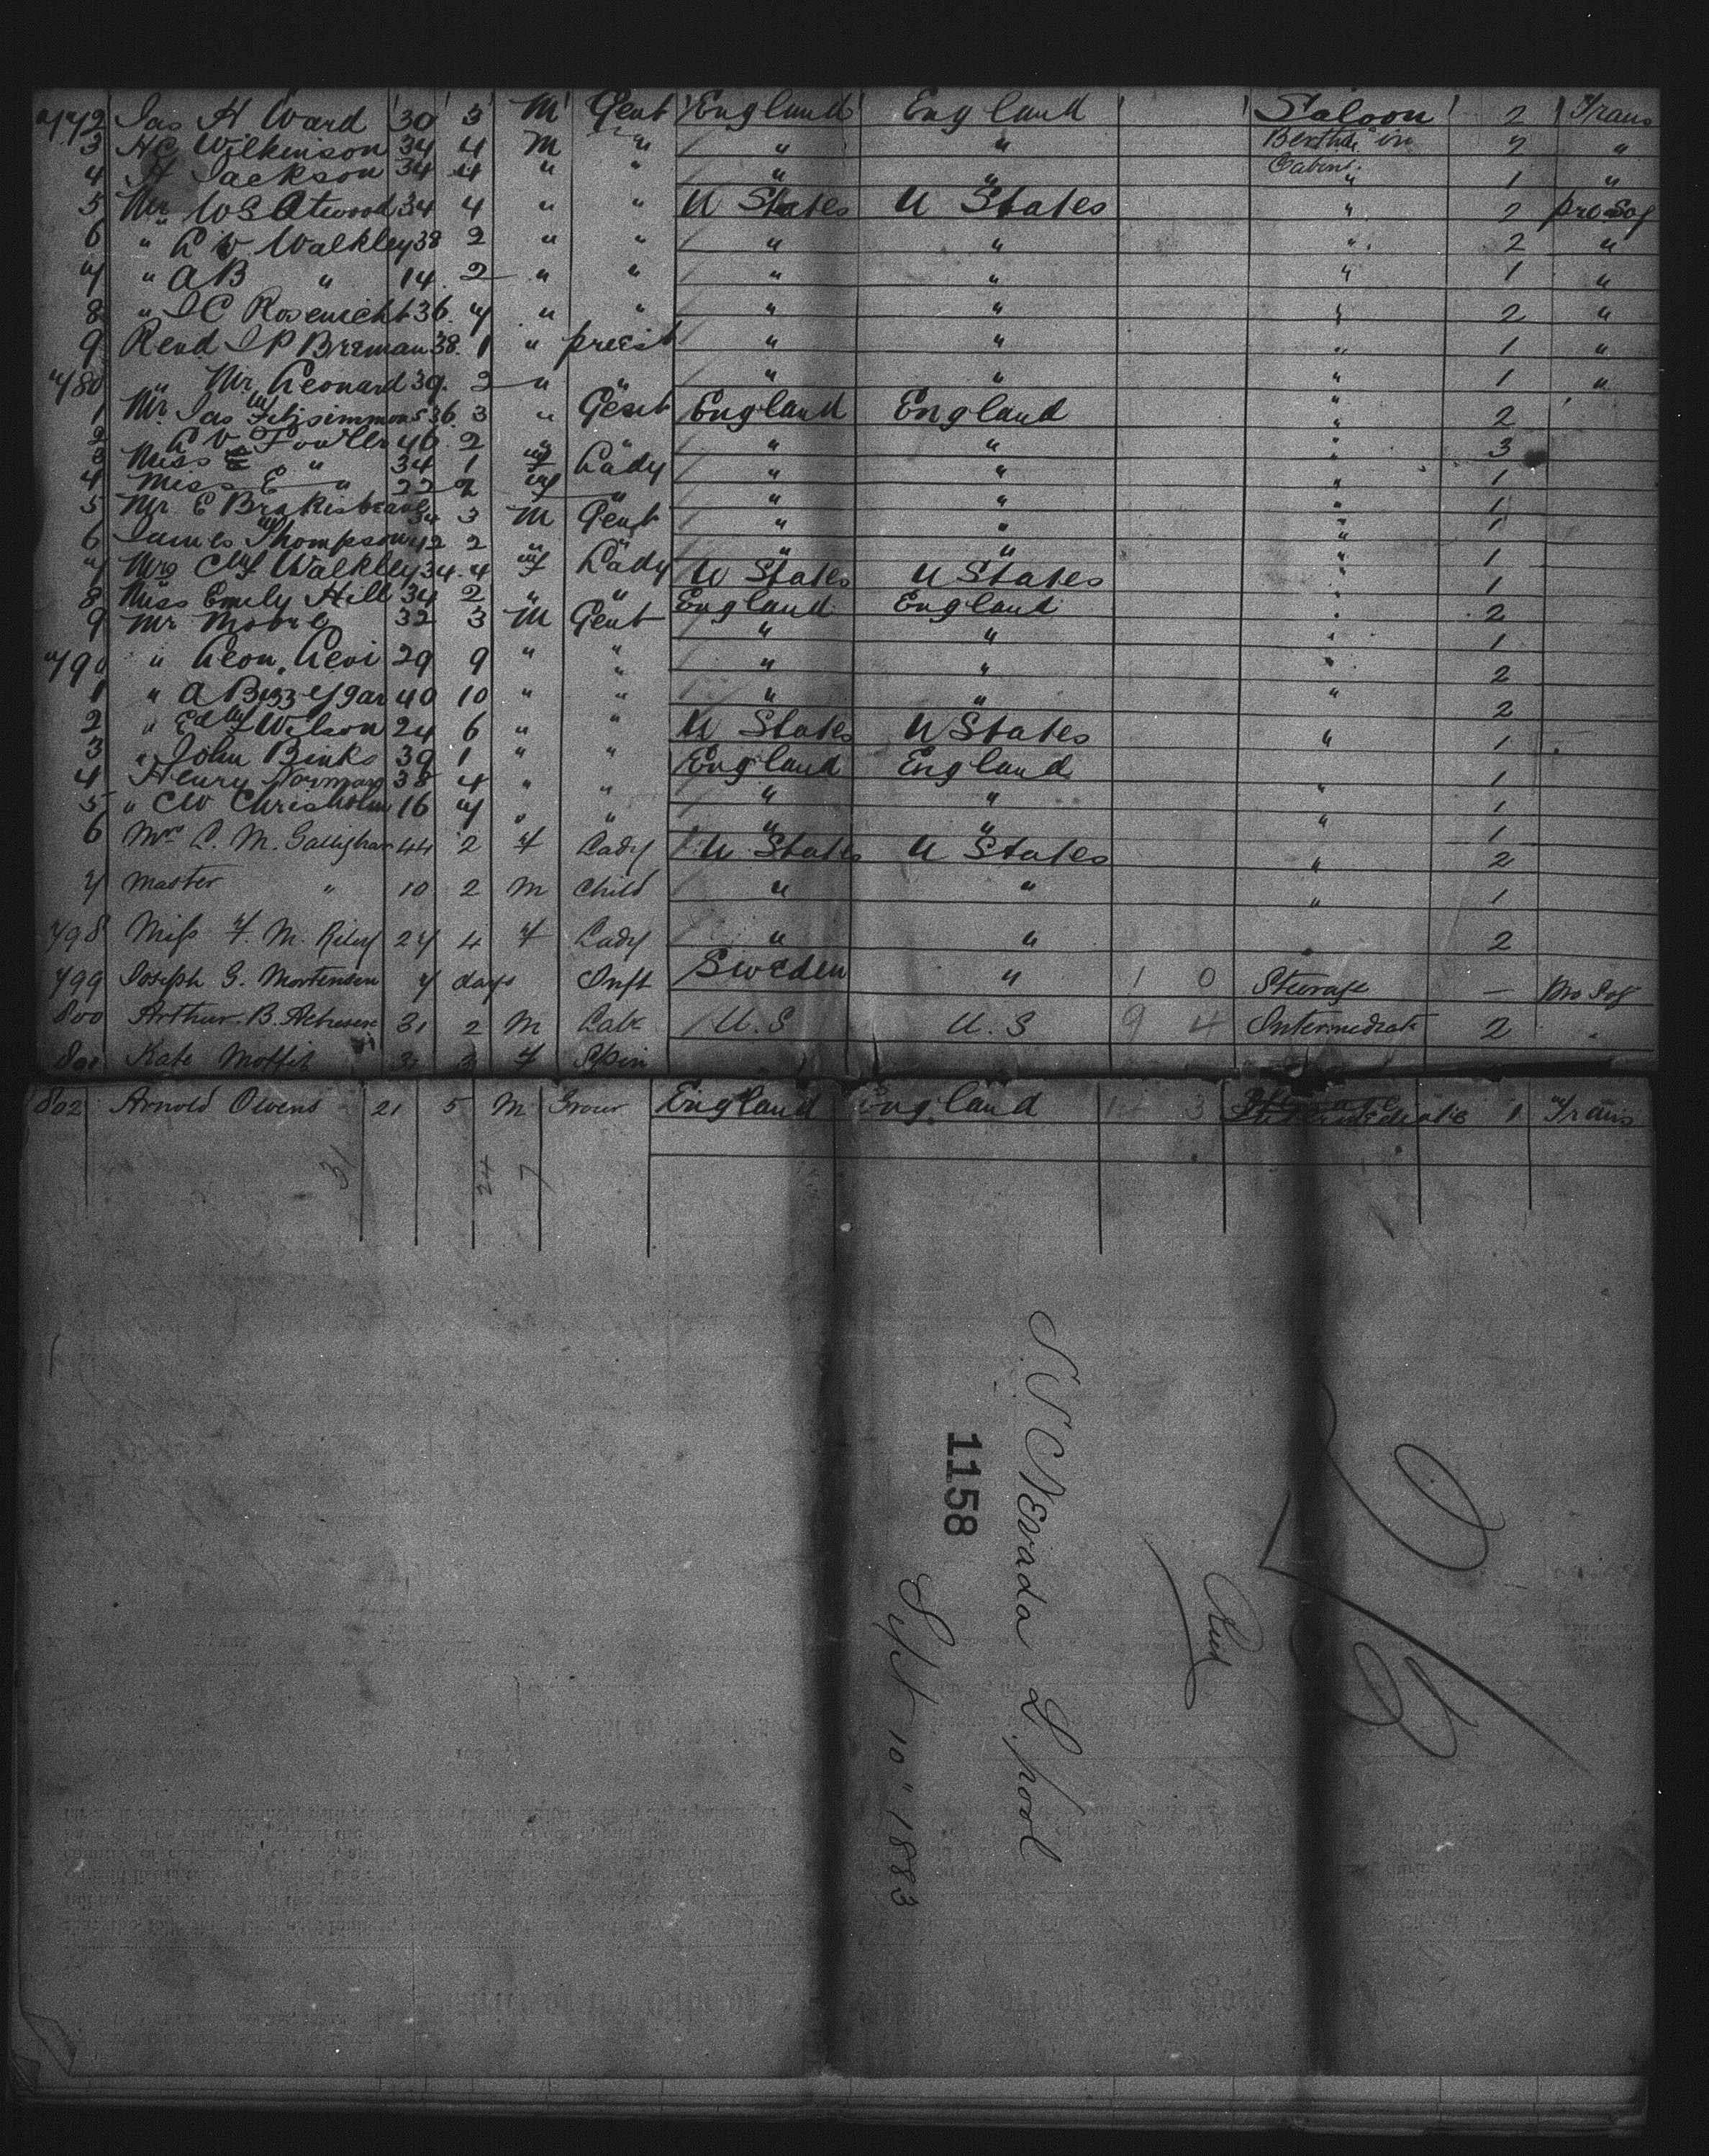 772 Jas H Ward 30 3 M Gent England England Saloon 2 Trans
3 H C Wilkinson 34 4 M " " " Berths in 2 "
4 H Jackson 34 4 " " " " Cabin " 1 "
5 Mr W S Atwood 34 4 " " U States U States " 2 pro Soj
6 " L V Walkley 38 2 " " " " " 2 "
7 " A B " 14 2 " " " " " 1 "
8 " I C Rosenicht 36 7 " " " " " 2 "
9 Revd I P Breman 38 1 " preist " " " 1 "
780 " Mr Leonard 39 2 " " " " " 1 "
1 Mr Jas Fitzsimmons 36 3 " Gent England England " 2
2 L V Fowler 46 2 " " " " " 3
3 Miss E " 34 1 f Lady " " " 1
4 Miss E " 22 2 f " " " " 1
5 Mr E 34 3 M Gent " " " 1
6 James Thompson 42 2 " " " " " 1
7 Mrs Walkley 34 4 f Lady U States U States " 1
8 Miss Emily Hill 34 2 " " England England " 2
9 Mr 32 3 M Gent " " " 1
790 " Leon Levi 29 9 " " " " " 2
1 " A 40 10 " " " " " 2
2 " Ed Wilson 24 6 " " U States U States " 1
3 " John Binks 39 1 " " England England 1
4 Henry Norman 38 4 " " " " " 1
5 " C W Chrisholm 16 7 " " " " " 1
6 Mrs L. M. Gallighan 44 2 f Lady U States U States " 2
7 Master " 10 2 M Child " " " 1
798 Miss F. M. Riley 27 4 f Lady " " " 2
799 Joseph G. Mortensen 7 days Inft Sweden " 1 0 Steerage — pro Soj
800 Arthur B. 31 2 M Lab U.S U.S 9 4 Intermediate 2 "
801 Kate Moffit 31 3 f Spin
802 Arnold Owens 21 5 M Grocer England England 3 Intermediate 1 Trans
31 24 7
SS Nevada L'pool
1158
Sept 10" 1883